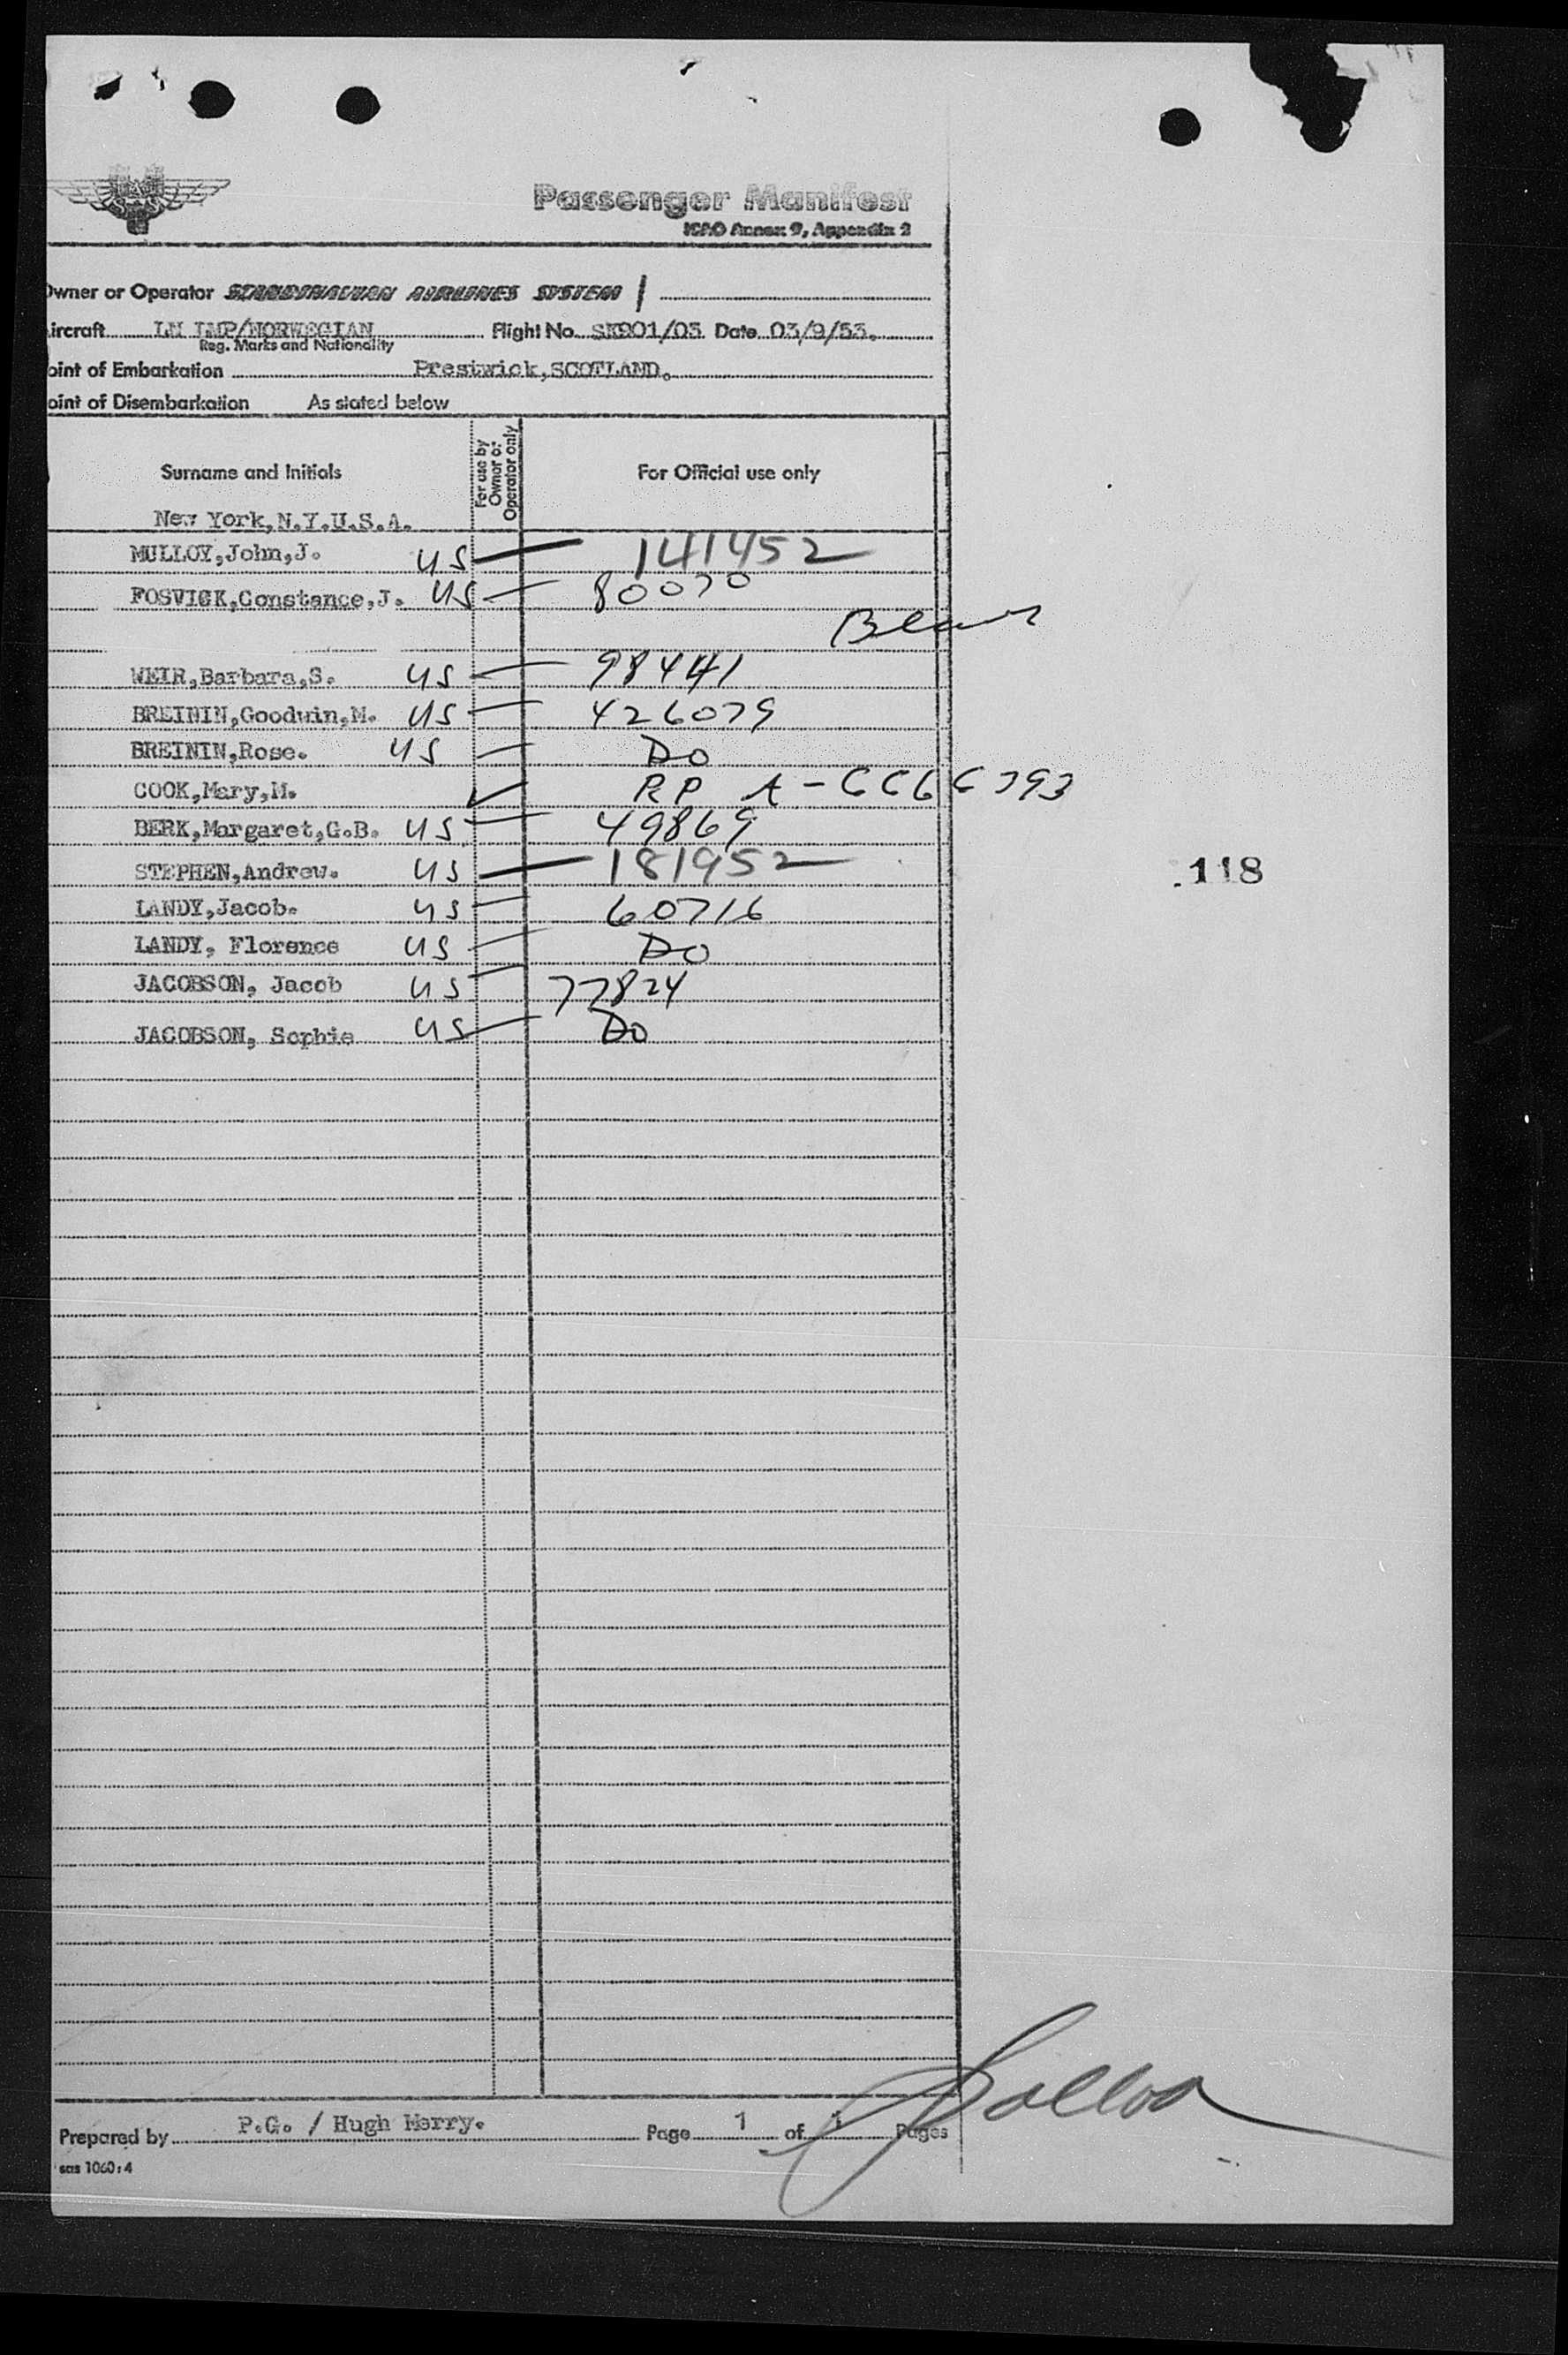 SAS
Passenger Manifest
ICAO Annex 9, Appendix 2
Owner or Operator SCANDINAVIAN AIRLINES SYSTEM
ircraft LN IMP/NORWEGIAN Flight No. SK901/03 Date 03/9/53.
Reg. Marks and Nationality
oint of Embarkation Prestwick,SCOTLAND.
oint of Disembarkation As stated below
Surname and Initials For use by Owner or Operator only For Official use only
New York,N.Y.U.S.A.
MULLOY,John,J. US 141452
FOSVICK,Constance,J. US 80070
WEIR,Barbara,S. US 98441
BREININ,Goodwin,M. US 426079
BREININ,Rose. US DO
COOK,Mary,M. RP A-6666793
BERK,Margaret,G.B. US 49869
STEPHEN,Andrew. US 181952
118
LANDY,Jacob. US 60716
LANDY, Florence US DO
JACOBSON, Jacob US 77824
JACOBSON, Sophie US DO
Prepared by P.G. / Hugh Merry. Page 1 of 1 Pages
sas 1060:4